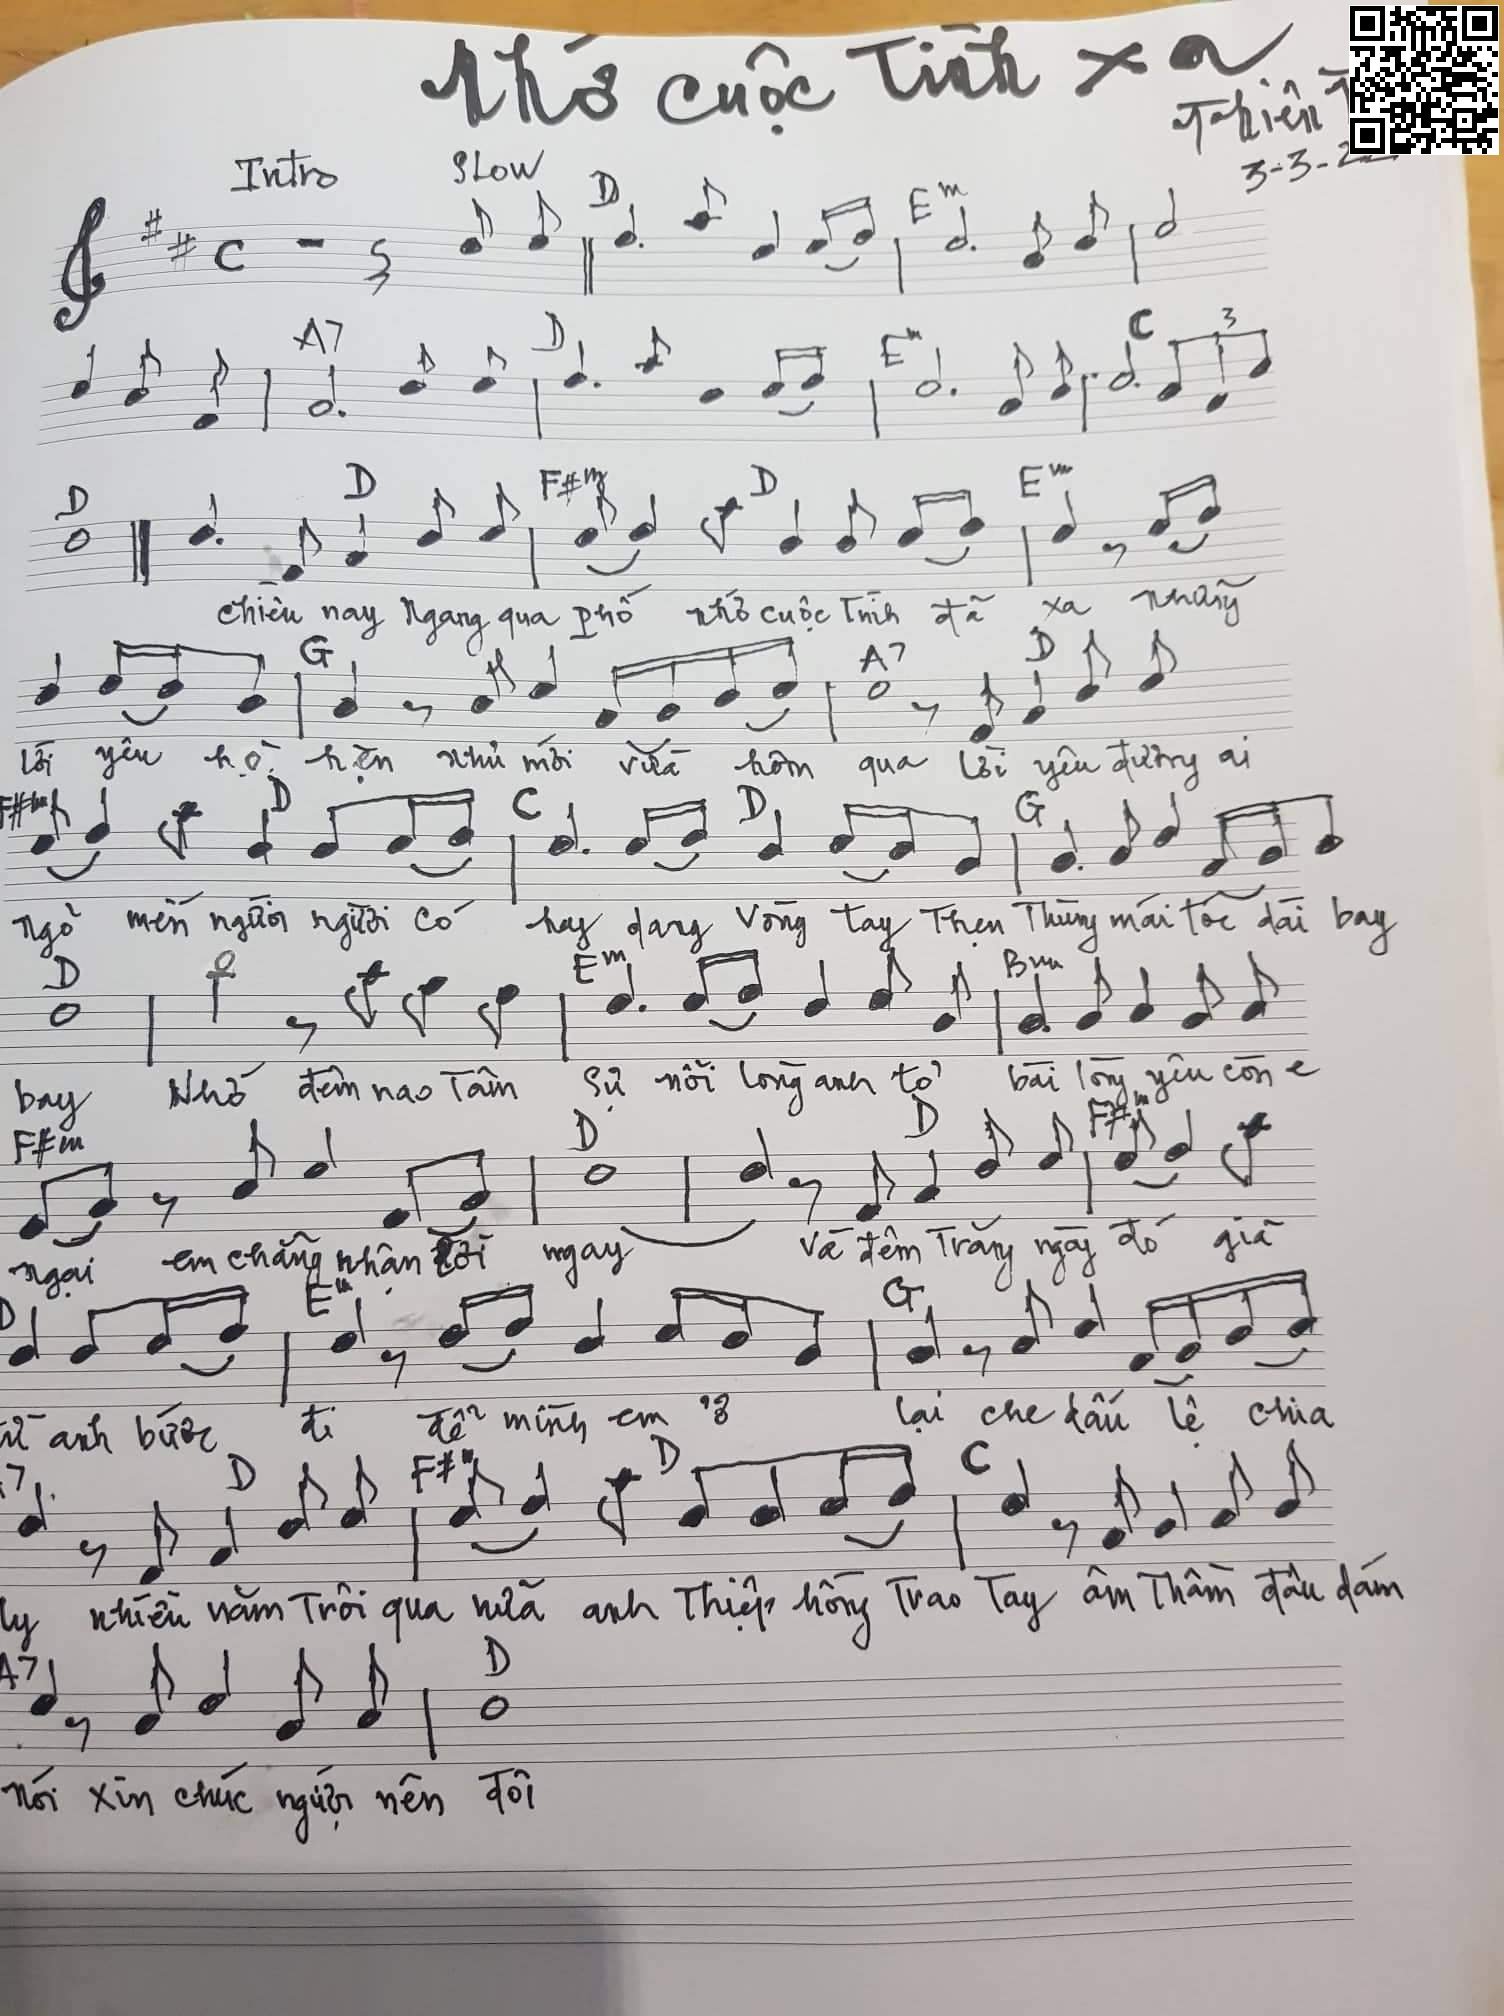 Nhớ cuộc Tình xa
Thiên
3-3-22
Intro SLow
D Em
A7 D Em C 3
D D F#m D Em
chiều nay Ngang qua phố nhớ cuộc Tình đã xa những
G A7 D
lời yêu hẹn như mới vừa hôm qua lời yêu đương ai
F#m D C D G
Ngỏ mến người người có hay dang vòng tay Thẹn Thùng mái tóc dài bay
D Em Bm
bay Nhớ đêm nao Tâm Sự nỗi lòng anh tỏ bài lòng yêu còn e
F#m D D F#m
ngại em chẳng nhận lời ngay Và đêm Trăng ngày đó giã
D Em G
từ anh bước đi để mình em ở lại che dấu lệ chia
A7 D F#m D C
ly nhiều năm Trôi qua nữa anh Thiệp hồng Trao Tay âm Thầm đâu dám
A7 D
nói xin chúc người nên đôi